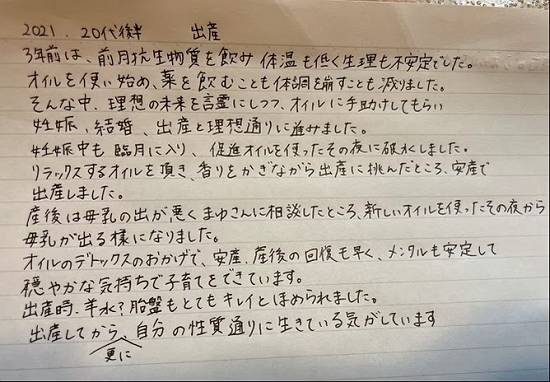 2021. 20代後半　出産
3年前は、前月抗生物質を飲み 体温も低く生理も不安定でした。
オイルを使い始め、薬を飲むことも体調を崩すことも減りました。
そんな中、理想の未来を言霊にしつつ、オイルに手助けしてもらい
妊娠、結婚、出産と理想通りに進みました。
妊娠中も 臨月に入り、促進オイルを使ったその夜に破水しました。
リラックスするオイルを頂き、香りをかぎながら出産に挑んだところ、安産で
出産しました。
産後は母乳の出が悪く まゆさんに相談したところ、新しいオイルを使ったその夜から
母乳が出る様になりました。
オイルのデトックスのおかげで、安産、産後の回復も早く、メンタルも安定して
穏やかな気持ちで子育てをできています。
出産時、羊水?胎盤もとてもキレイとほめられました。
出産してから、更に自分の性質通りに生きている気がしています